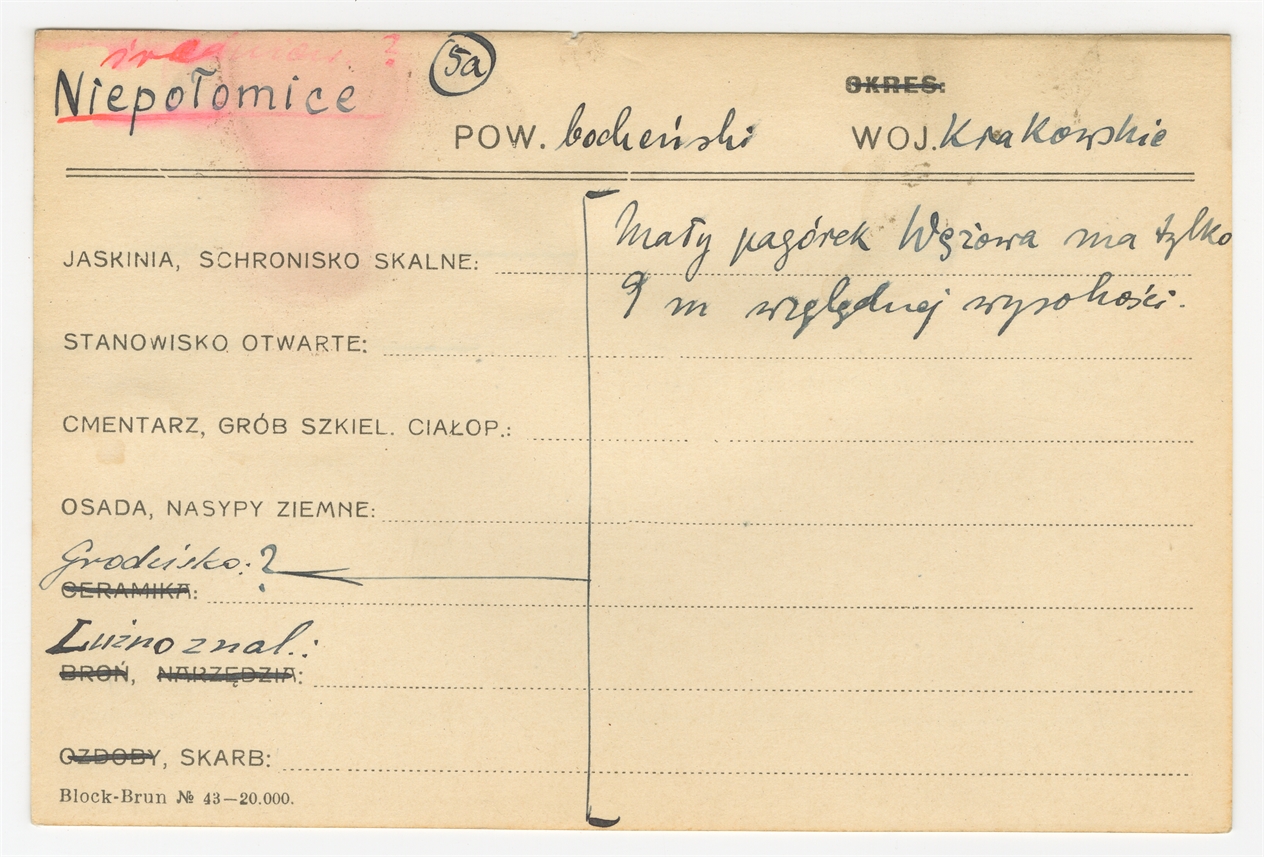 średniow. ?
Niepołomice
5a
OKRES:
POW. bocheński WOJ. Krakowskie
Mały pagórek Wężowa ma tylko
9 m względnej wysokości.
JASKINIA, SCHRONISKO SKALNE:
STANOWISKO OTWARTE:
CMENTARZ, GRÓB SZKIEL. CIAŁOP.:
OSADA, NASYPY ZIEMNE:
Grodzisko: ?
CERAMIKA:
Luźno znal.:
BROŃ, NARZĘDZIA:
OZDOBY, SKARB:
Block-Brun № 43—20.000.